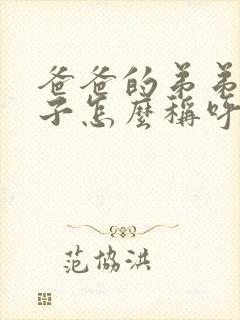 爸爸的弟弟
子怎麼稱呼
范協洪